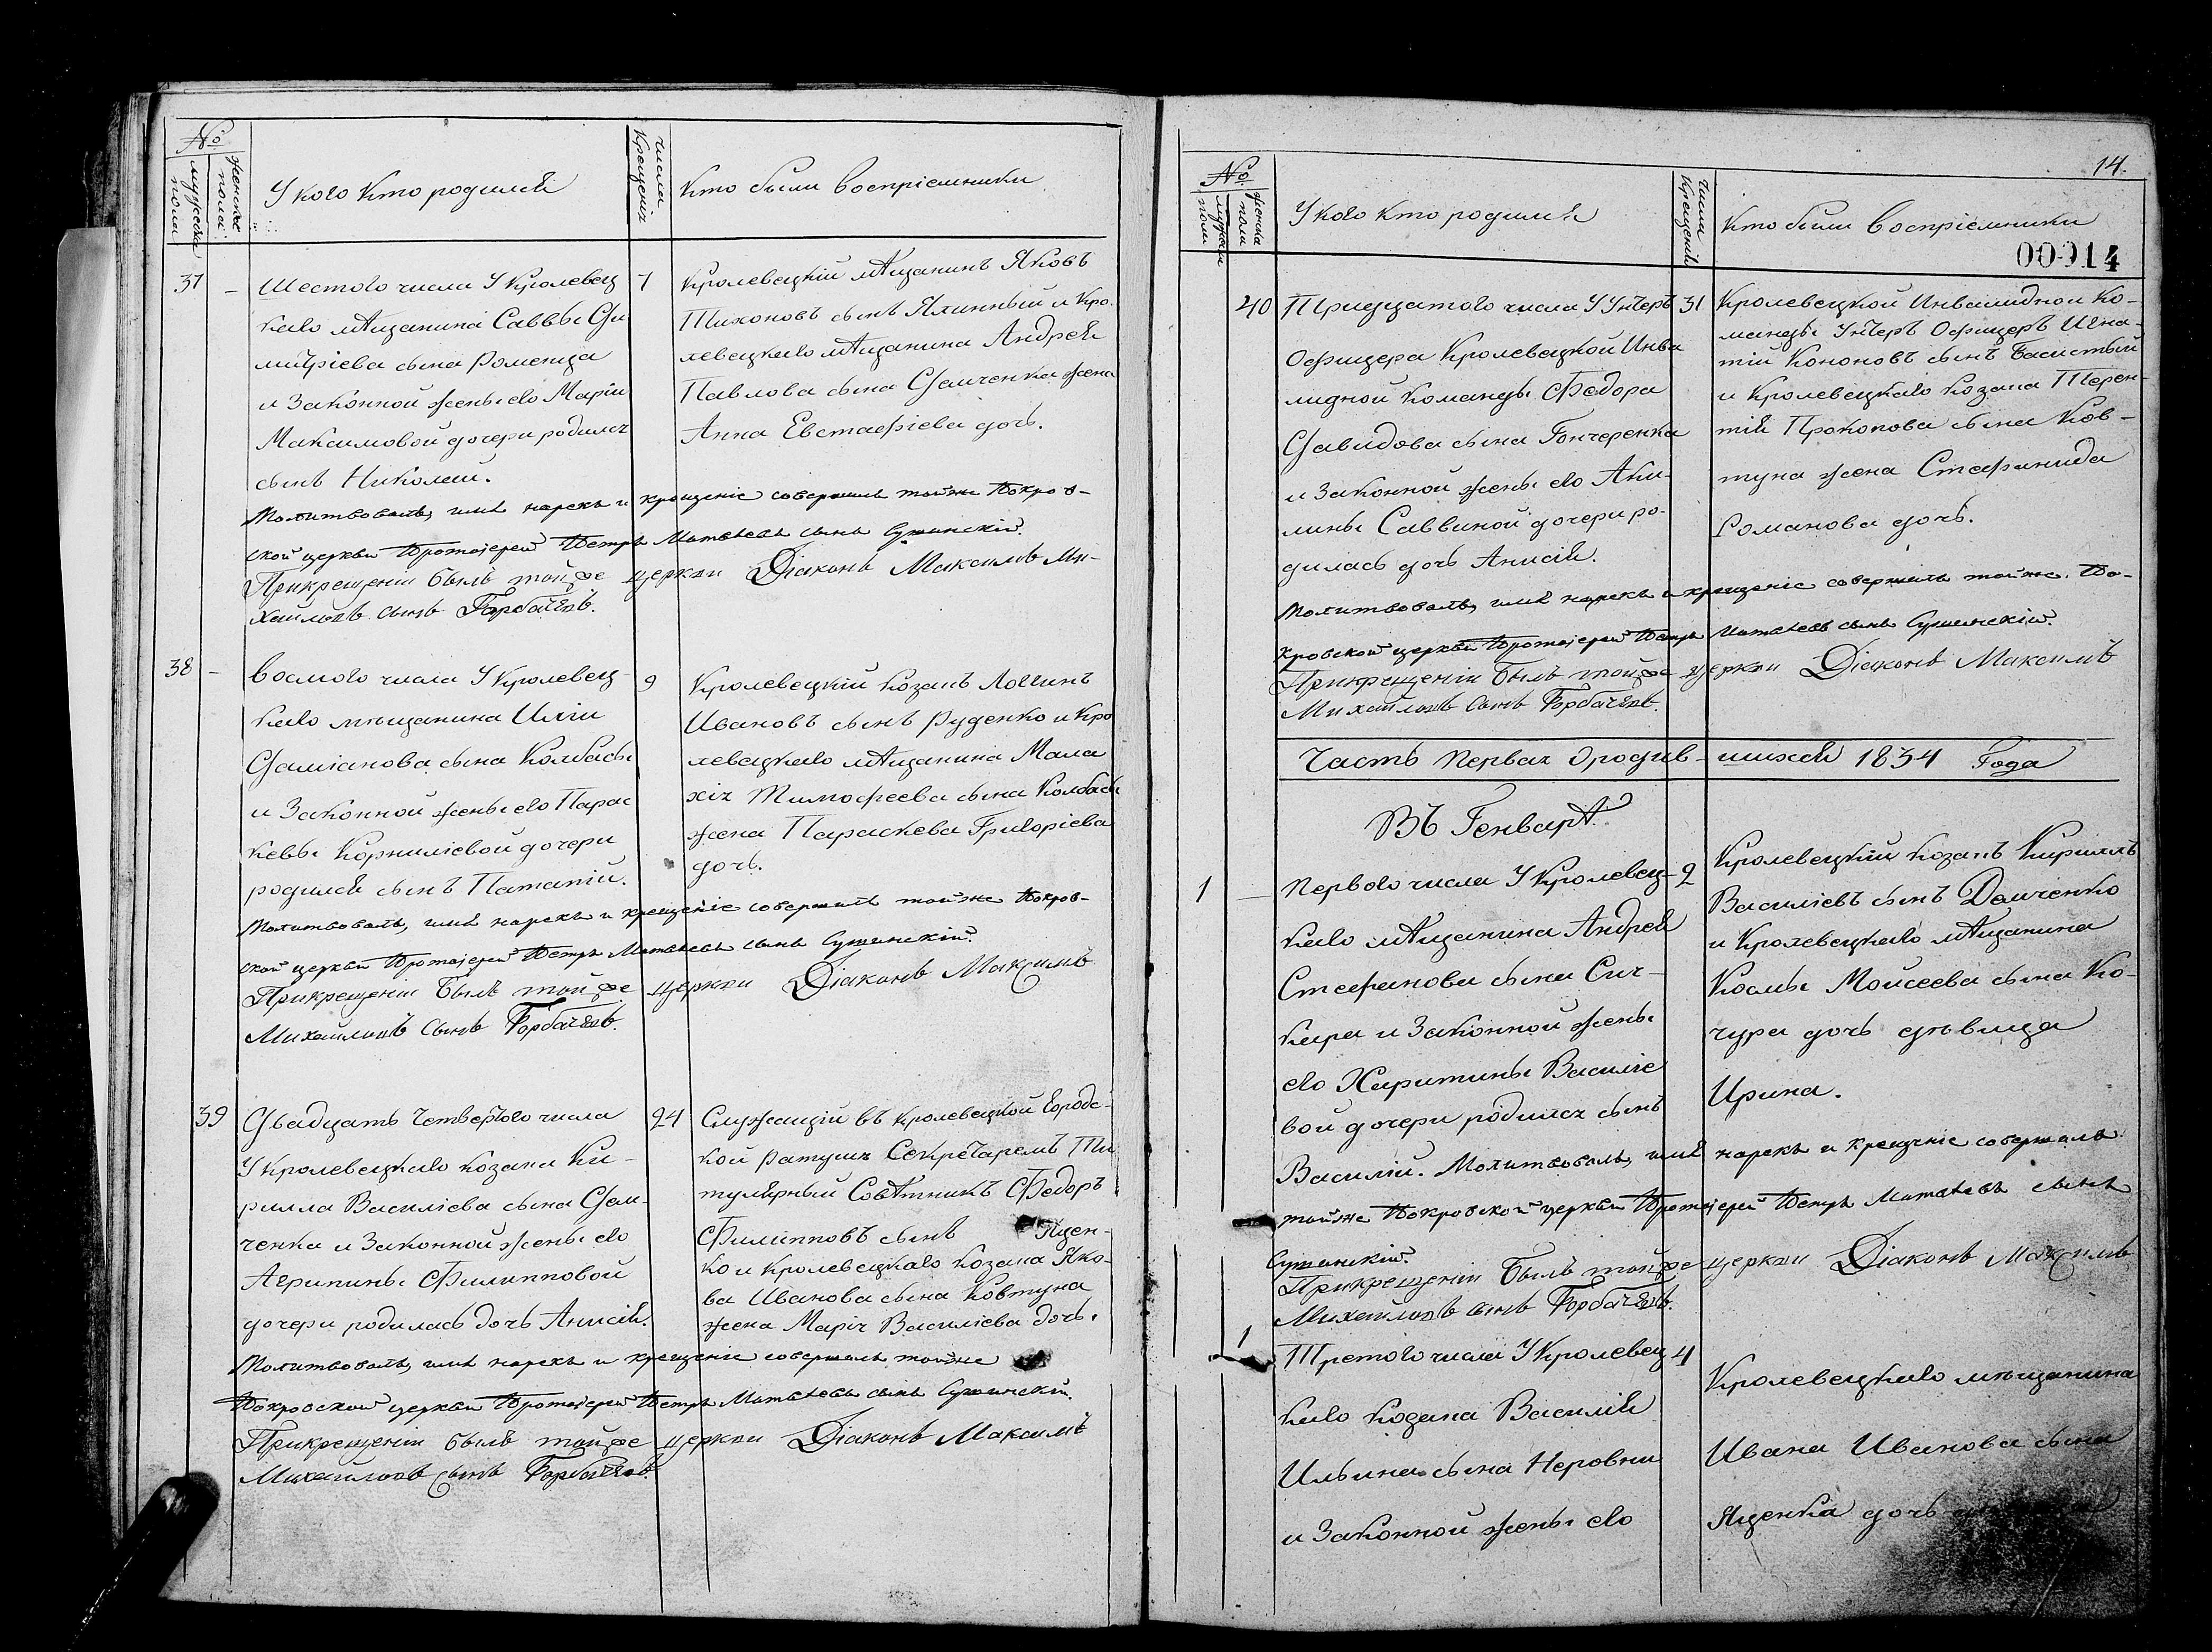 №
мужеска пола
женска пола
У кого кто родился
числа крещенія
кто были восприемники
37 – Шестого числа У Кролевец
каго мѣщанина Саввы Ди
митріева сына Роменца
и Законной жены его Маріи
Максимовой дочери родился
сынъ Николай.
7
Кролевецкій мѣщанинъ Яковъ
Тихоновъ сынъ Ялинный и Кро-
левецкаго мѣщанина Андрея
Павлова сына Самченка жена
Анна Евстафіева дочь.
Молитвовалъ, имя нарекъ и крещеніе совершилъ тойже Покров-
ской церкви Протоіерей Петръ Матвѣевъ сынъ Сушинскій.
Прикрещеніи былъ тойже церкви Діаконъ Максимъ Ми-
хайловъ сынъ Горбачевъ.
38 – восмого числа У Кролевец
каго мѣщанина Иліи
Даміанова сына Колбасы
и Законной жены его Парас
кевы Корниліевой дочери
родился сынъ Патапій.
9
Кролевецкій козакъ Логинъ
Ивановъ сынъ Руденко и Кро
левецкаго мѣщанина Мала
хія Тимофеева сына Колбасы
жена Параскева Григоріева
дочь.
Молитвовалъ, имя нарекъ и крещеніе совершилъ тойже Покров-
ской церкви Протоіерей Петръ Матвѣевъ сынъ Сушинскій.
Прикрещеніи былъ тойже церкви Діаконъ Максимъ
Михайловъ сынъ Горбачевъ.
39 Двадцать четвертого числа
У Кролевецкаго козака Ки-
рилла Василіева сына Дем-
ченка и Законной жены его
Агрипины Филипповой
дочери родилась дочь Анисія.
24
Служащій въ Кролевецкой Городс-
кой ратуши Секретаремъ Ти
тулярный Совѣтникъ Федоръ
Филипповъ сынъ Яцен-
ко и Кролевецкаго козака Яко-
ва Иванова сына Ковтуна
жена Марія Василіева дочь.
Молитвовалъ, имя нарекъ и крещеніе совершилъ тойже
Покровской церкви Протоіерей Петръ Матвѣевъ сынъ Сушинскій.
Прикрещеніи былъ тойже церкви Діаконъ Максимъ
Михайловъ сынъ Горбачевъ.
14.
№
мужеска пола
женска пола
У кого кто родился
числа крещенія
кто были восприемники
00914
40 Тридцатого числа У Унтеръ
Офицера Кролевецкой Инва
лидной Команды Федора
Давидова сына Гончеренка
и Законной жены его Аки-
лины Саввиной дочери ро-
дилась дочь Анисія.
31
Кролевецкой Инвалидной Ко-
манды Унтеръ Офицеръ Игна-
тій Кононовъ сынъ Басистый
и Кролевецкаго козака Терен-
тій Прокопова сына Ков-
туна жена Стефанида
Романова дочь.
Молитвовалъ, имя нарекъ и крещеніе совершилъ тойже По-
кровской церкви Протоіерей Петръ Матвѣевъ сынъ Сушинскій.
Прикрещеніи былъ тойже церкви Діаконъ Максимъ
Михайловъ сынъ Горбачевъ.
Часть первая о родив-шихся 1834 Года
Въ Генварѣ
1 – Первого числа У Кролевец-
каго мѣщанина Андрея
Стефанова сына Сич-
кара и Законной жены
его Харитины Василіе
вой дочери родился сынъ
Василій.
2
Кролевецкій козакъ Кириллъ
Василіевъ сынъ Демченко
и Кролевецкаго мѣщанина
Космы Моисеева сына Ко-
чура дочь дѣвица
Ирина.
Молитвовалъ, имя нарекъ и крещеніе совершилъ
тойже Покровской церкви Протоіерей Петръ Матвѣевъ сынъ
Сушинскій.
Прикрещеніи былъ тойже церкви Діаконъ Максимъ
Михайловъ сынъ Горбачевъ.
1 Третого числа У Кролевец
каго козака Василія
Ильина сына Неровни
и Законной жены его
4
Кролевецкаго мѣщанина
Ивана Иванова сына
Яценка дочь